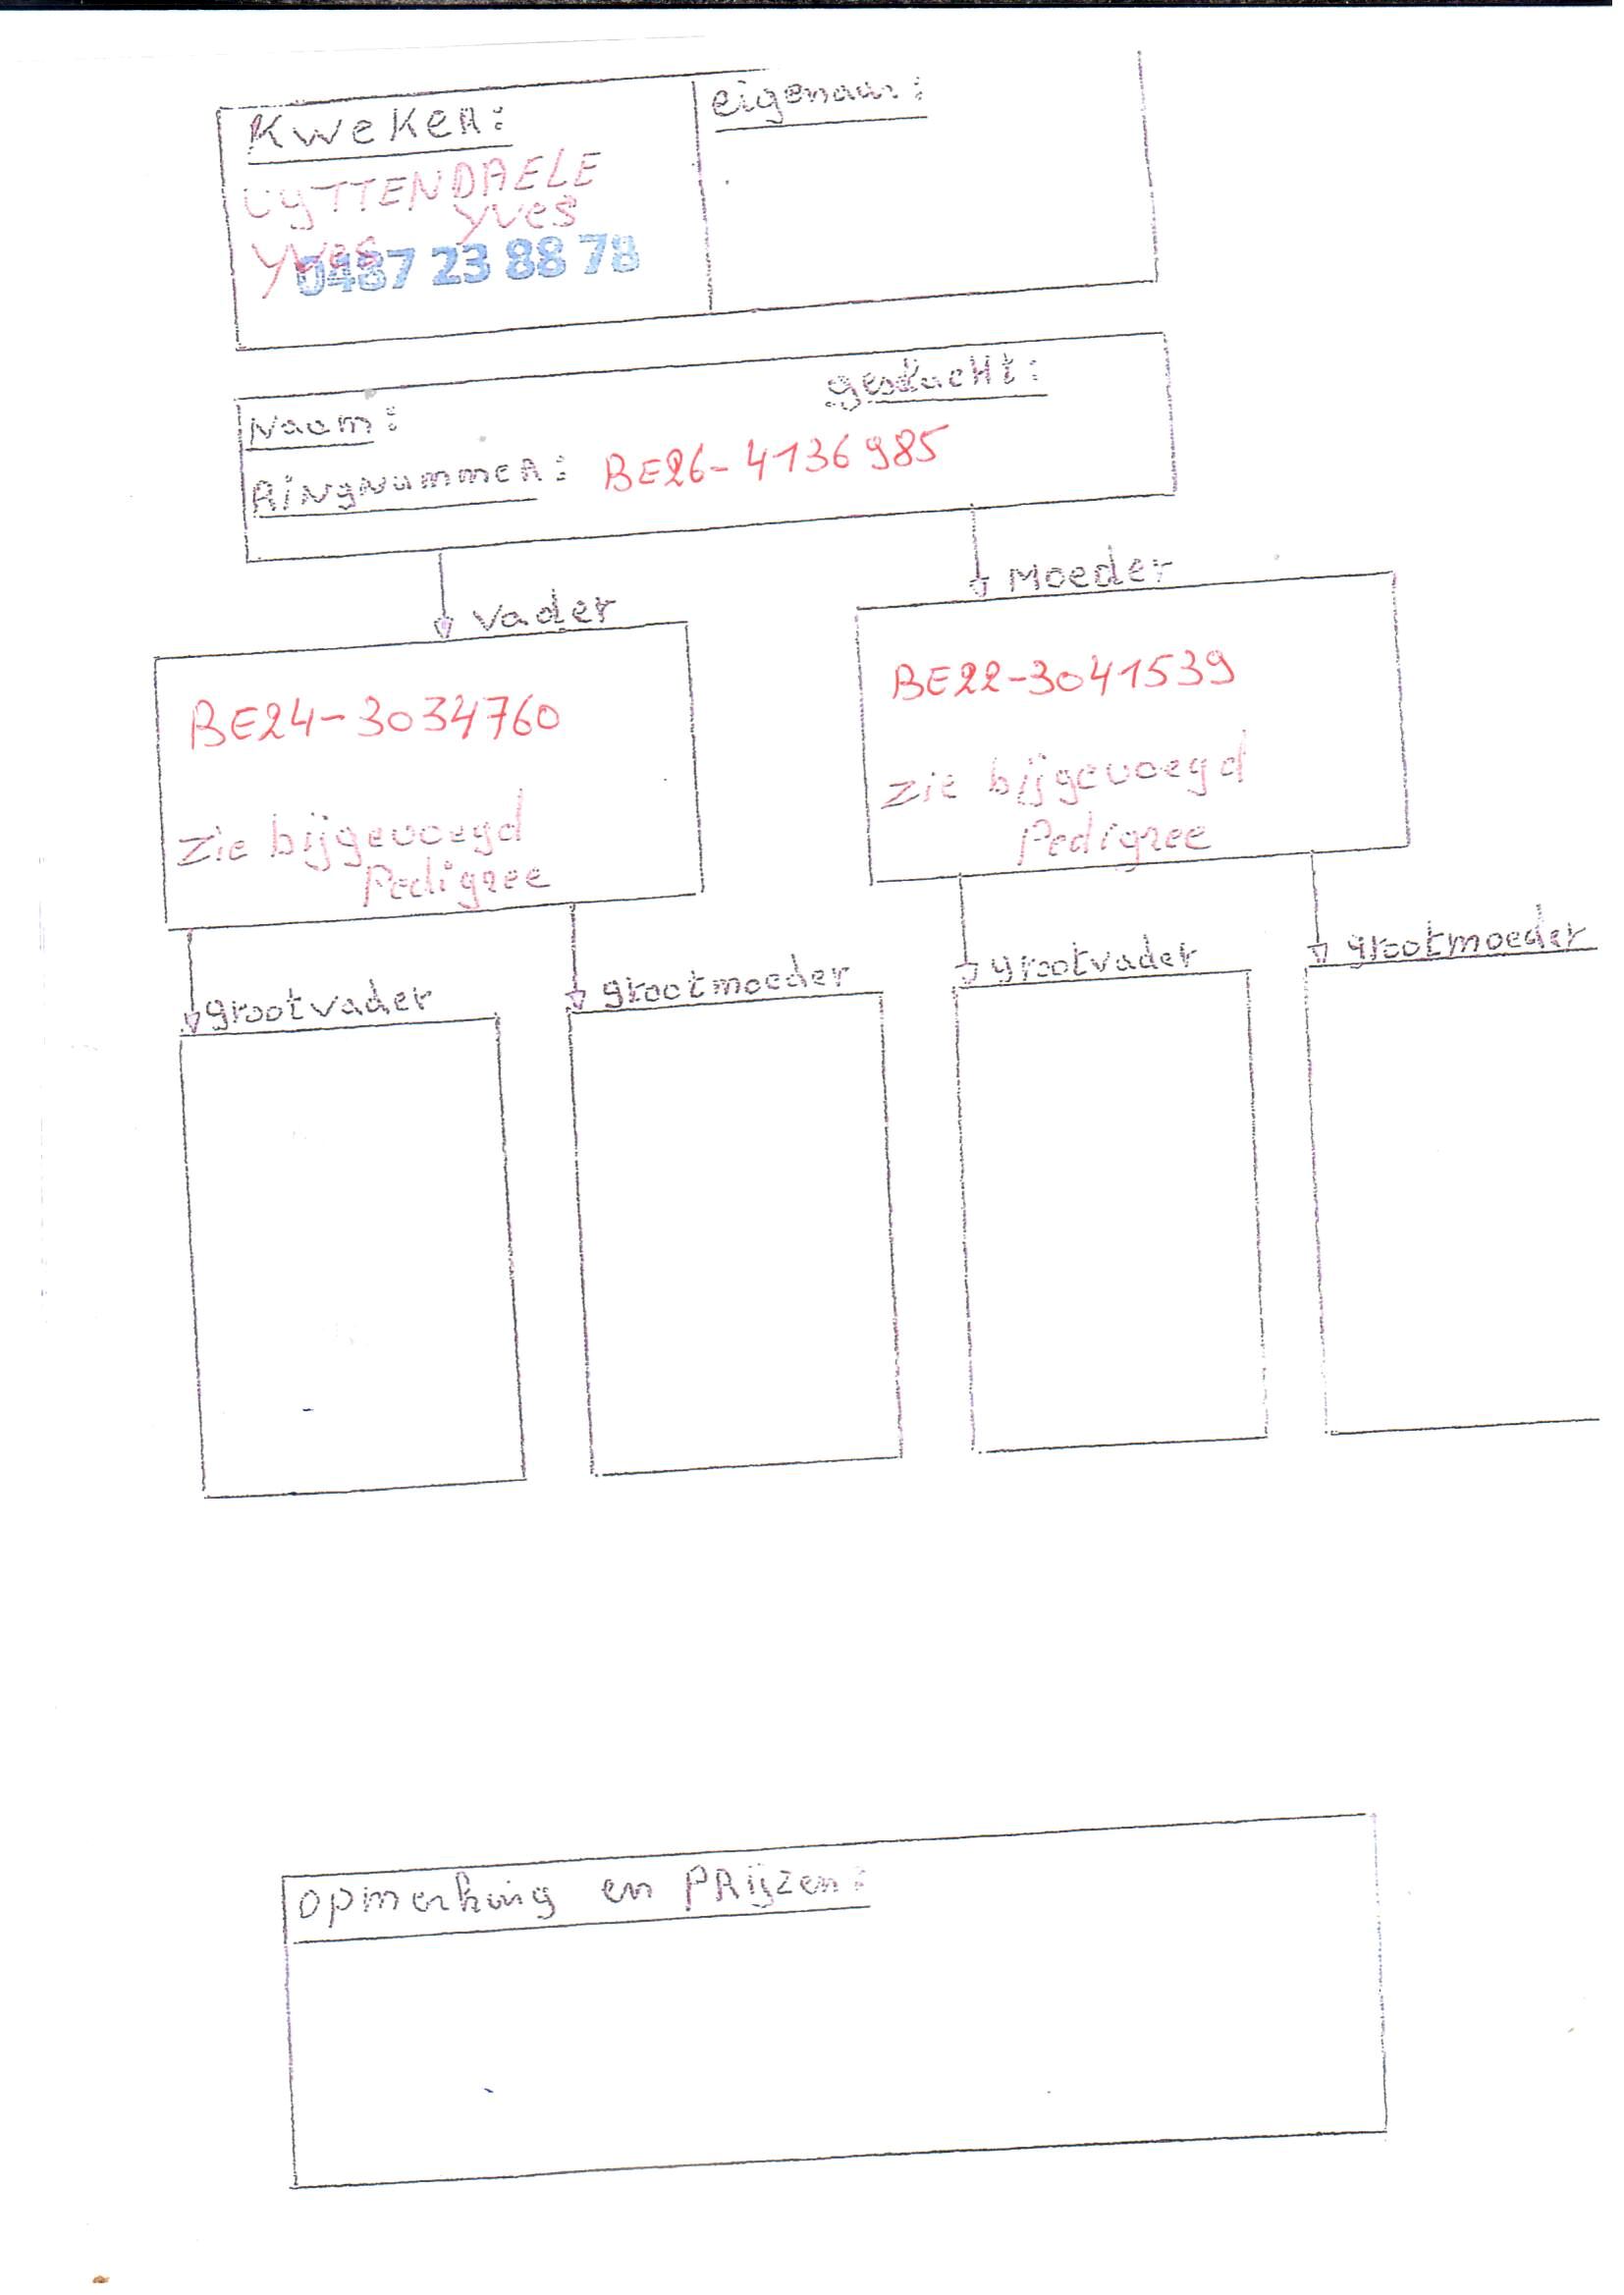 Kweker:
eigenaar:
UyTTENDAELE
yves
yves
0487 23 88 78
geslacht:
Naam:
Ringnummer: BE26-4136985
Moeder
Vader
BE22-3041539
BE24-3034760
zie bijgevoegd
Pedigree
zie bijgevoegd
Pedigree
grootvader
grootmoeder
grootvader
grootmoeder
opmerking en PRijzen: